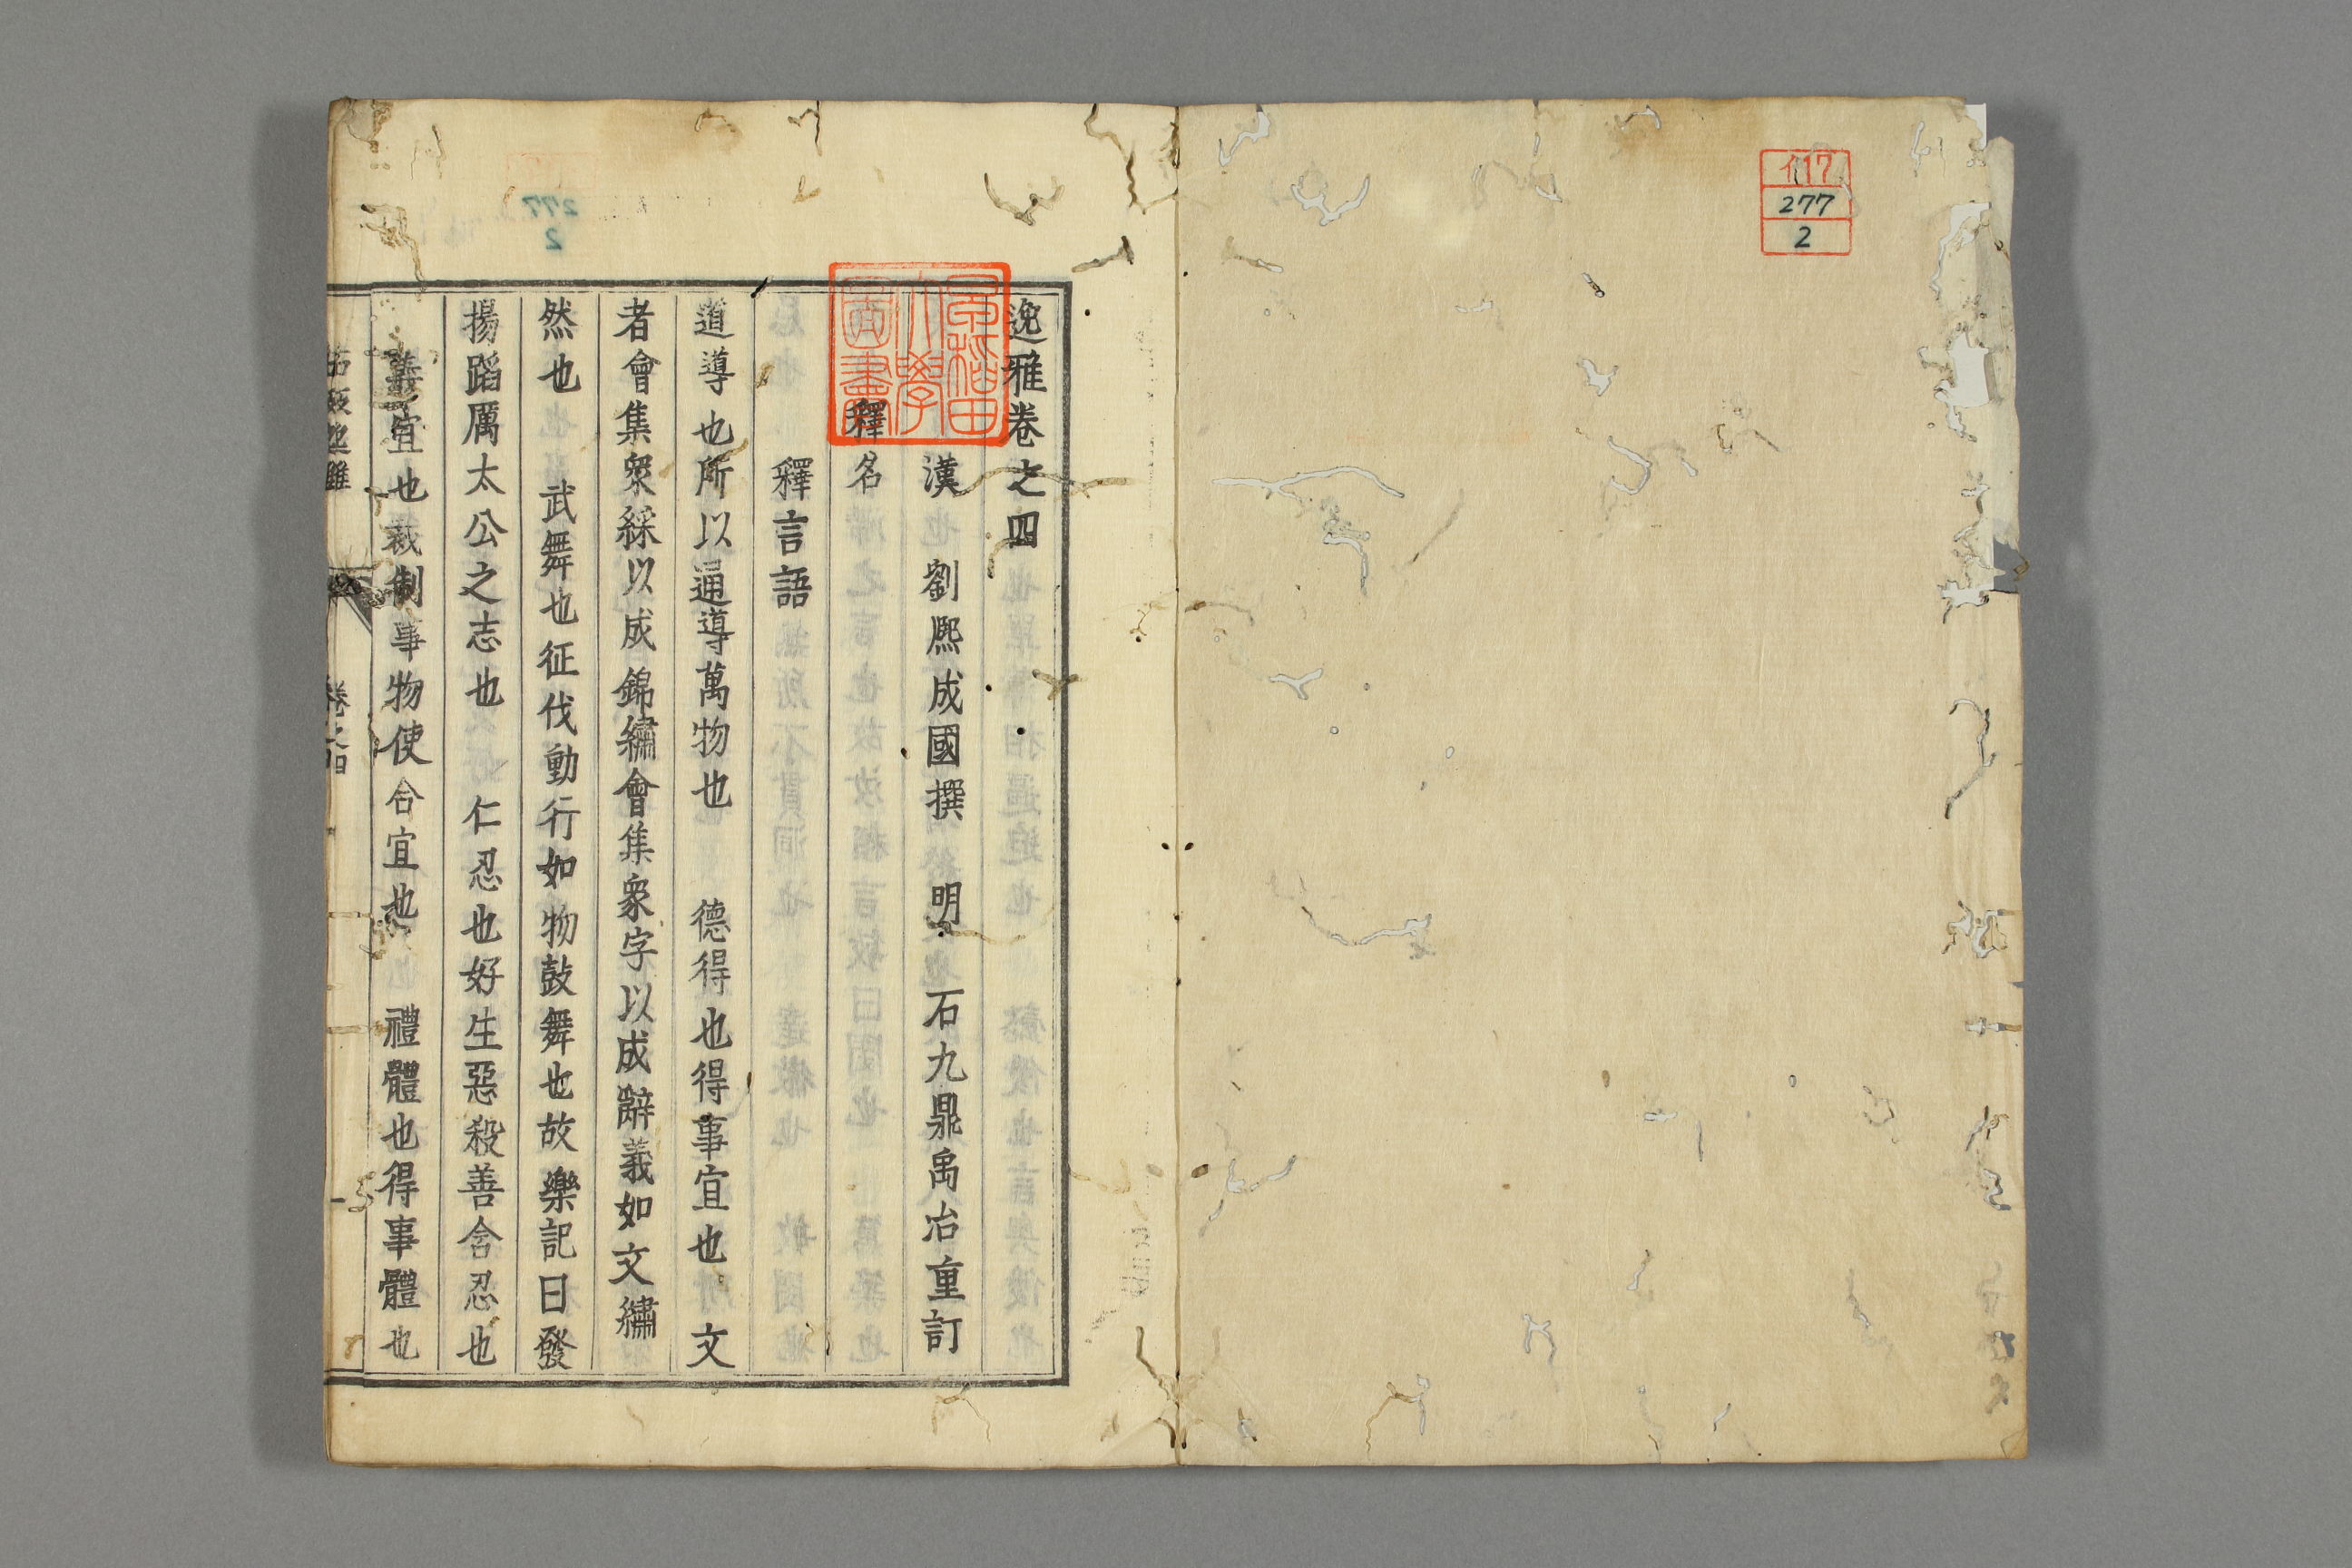 イ17
277
2
逸雅卷之四
漢 劉熙成國撰 明 石九鼎禹冶重訂
釋名
釋言語
道導也所以通導萬物也 德得也得事宜也 文
者會集衆綵以成錦繡會集衆字以成辭義如文繡
然也 武舞也征伐動行如物鼓舞也故樂記曰發
揚蹈厲太公之志也 仁忍也好生惡殺善含忍也
義宜也裁制事物使合宜也 禮體也得事體也
卷之四
早稻田
大學
圖書